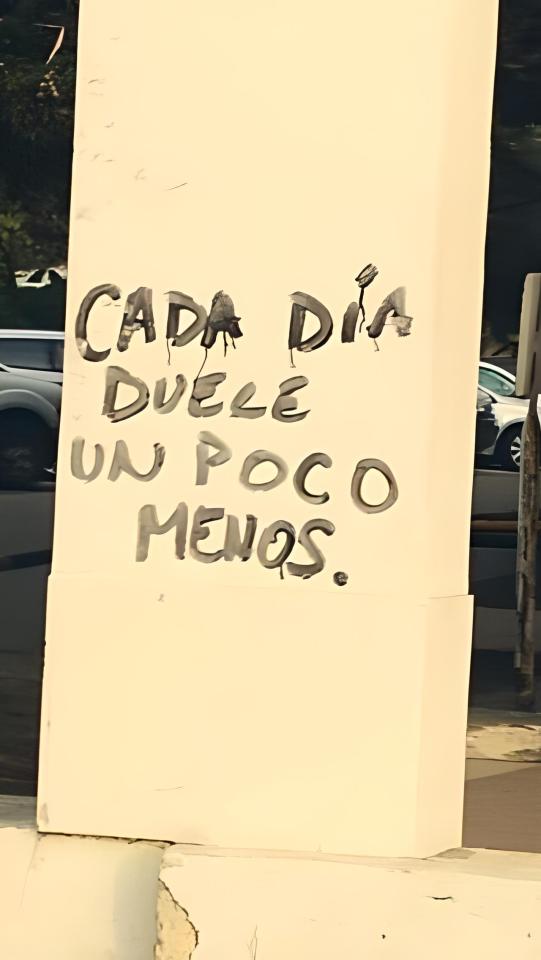 CADA DÍA
DUELE
UN POCO
MENOS.